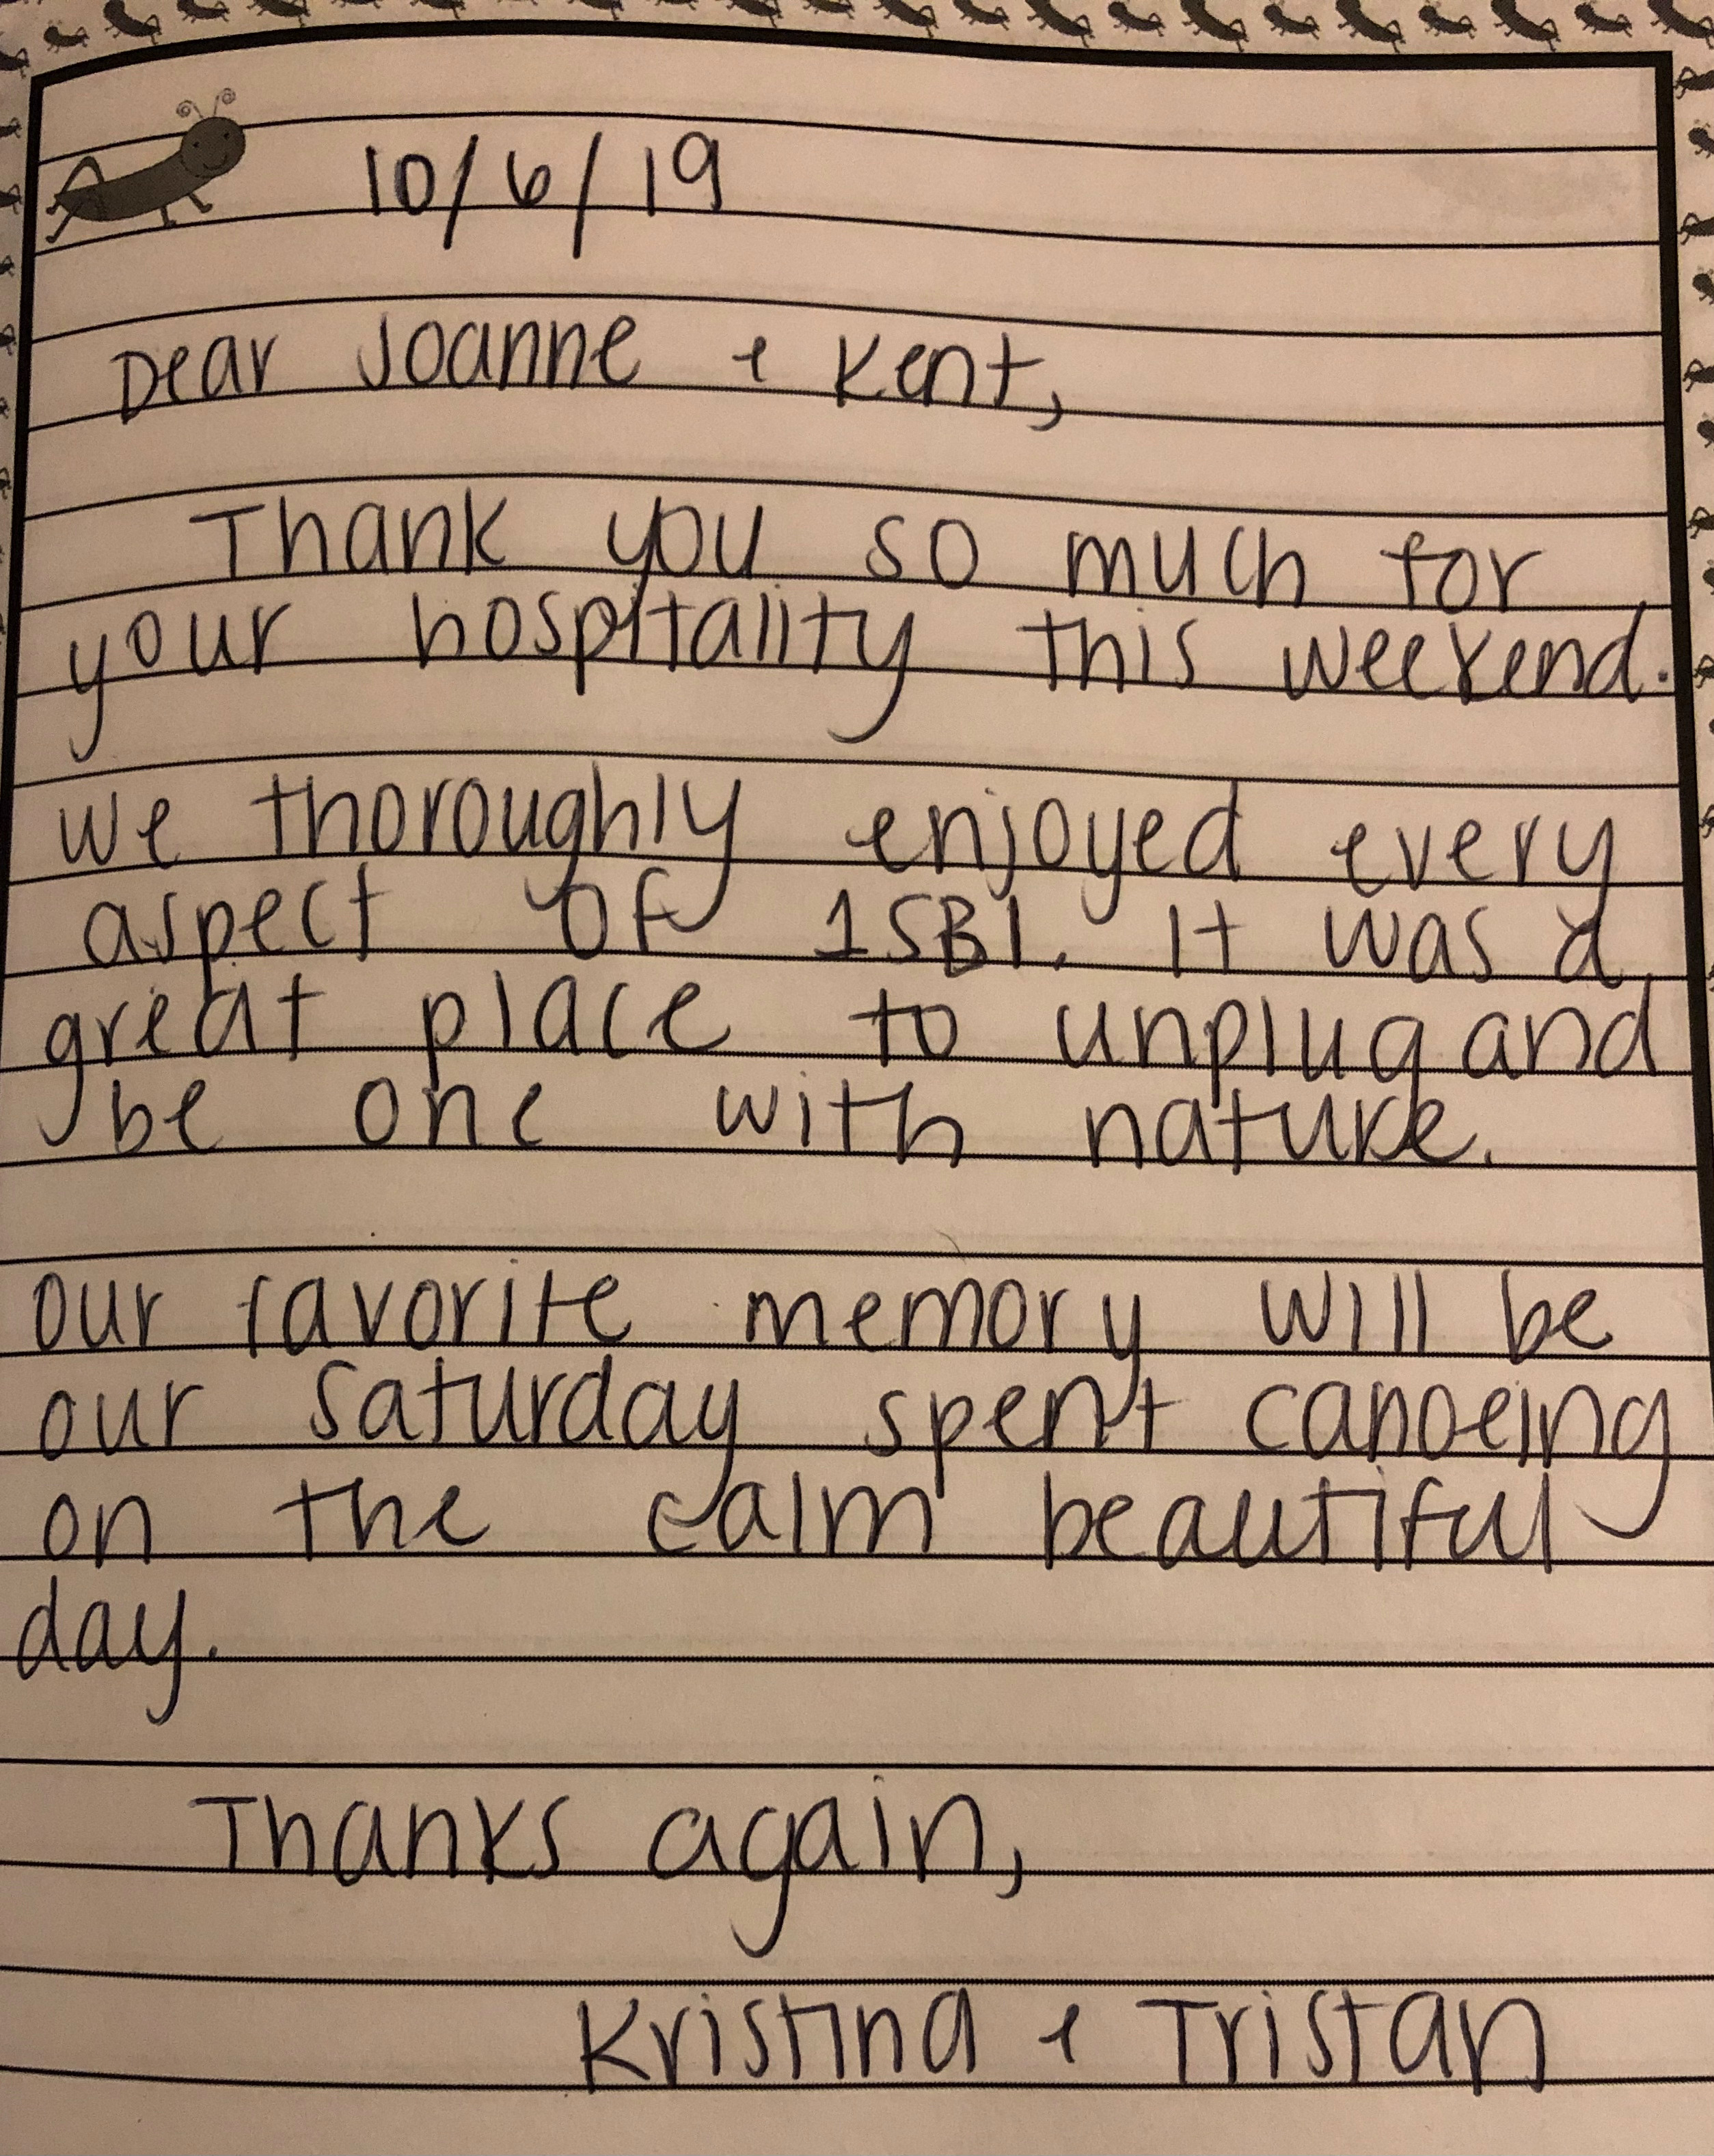 10/6/19
Dear Joanne + Kent,
Thank you so much for
your hospitality this weekend.
We thoroughly enjoyed every
aspect of 1SB1. It was a
great place to unplug and
be one with nature.
our favorite memory will be
our Saturday spent canoeing
on the calm beautiful
day.
Thanks again,
Kristina + Tristan